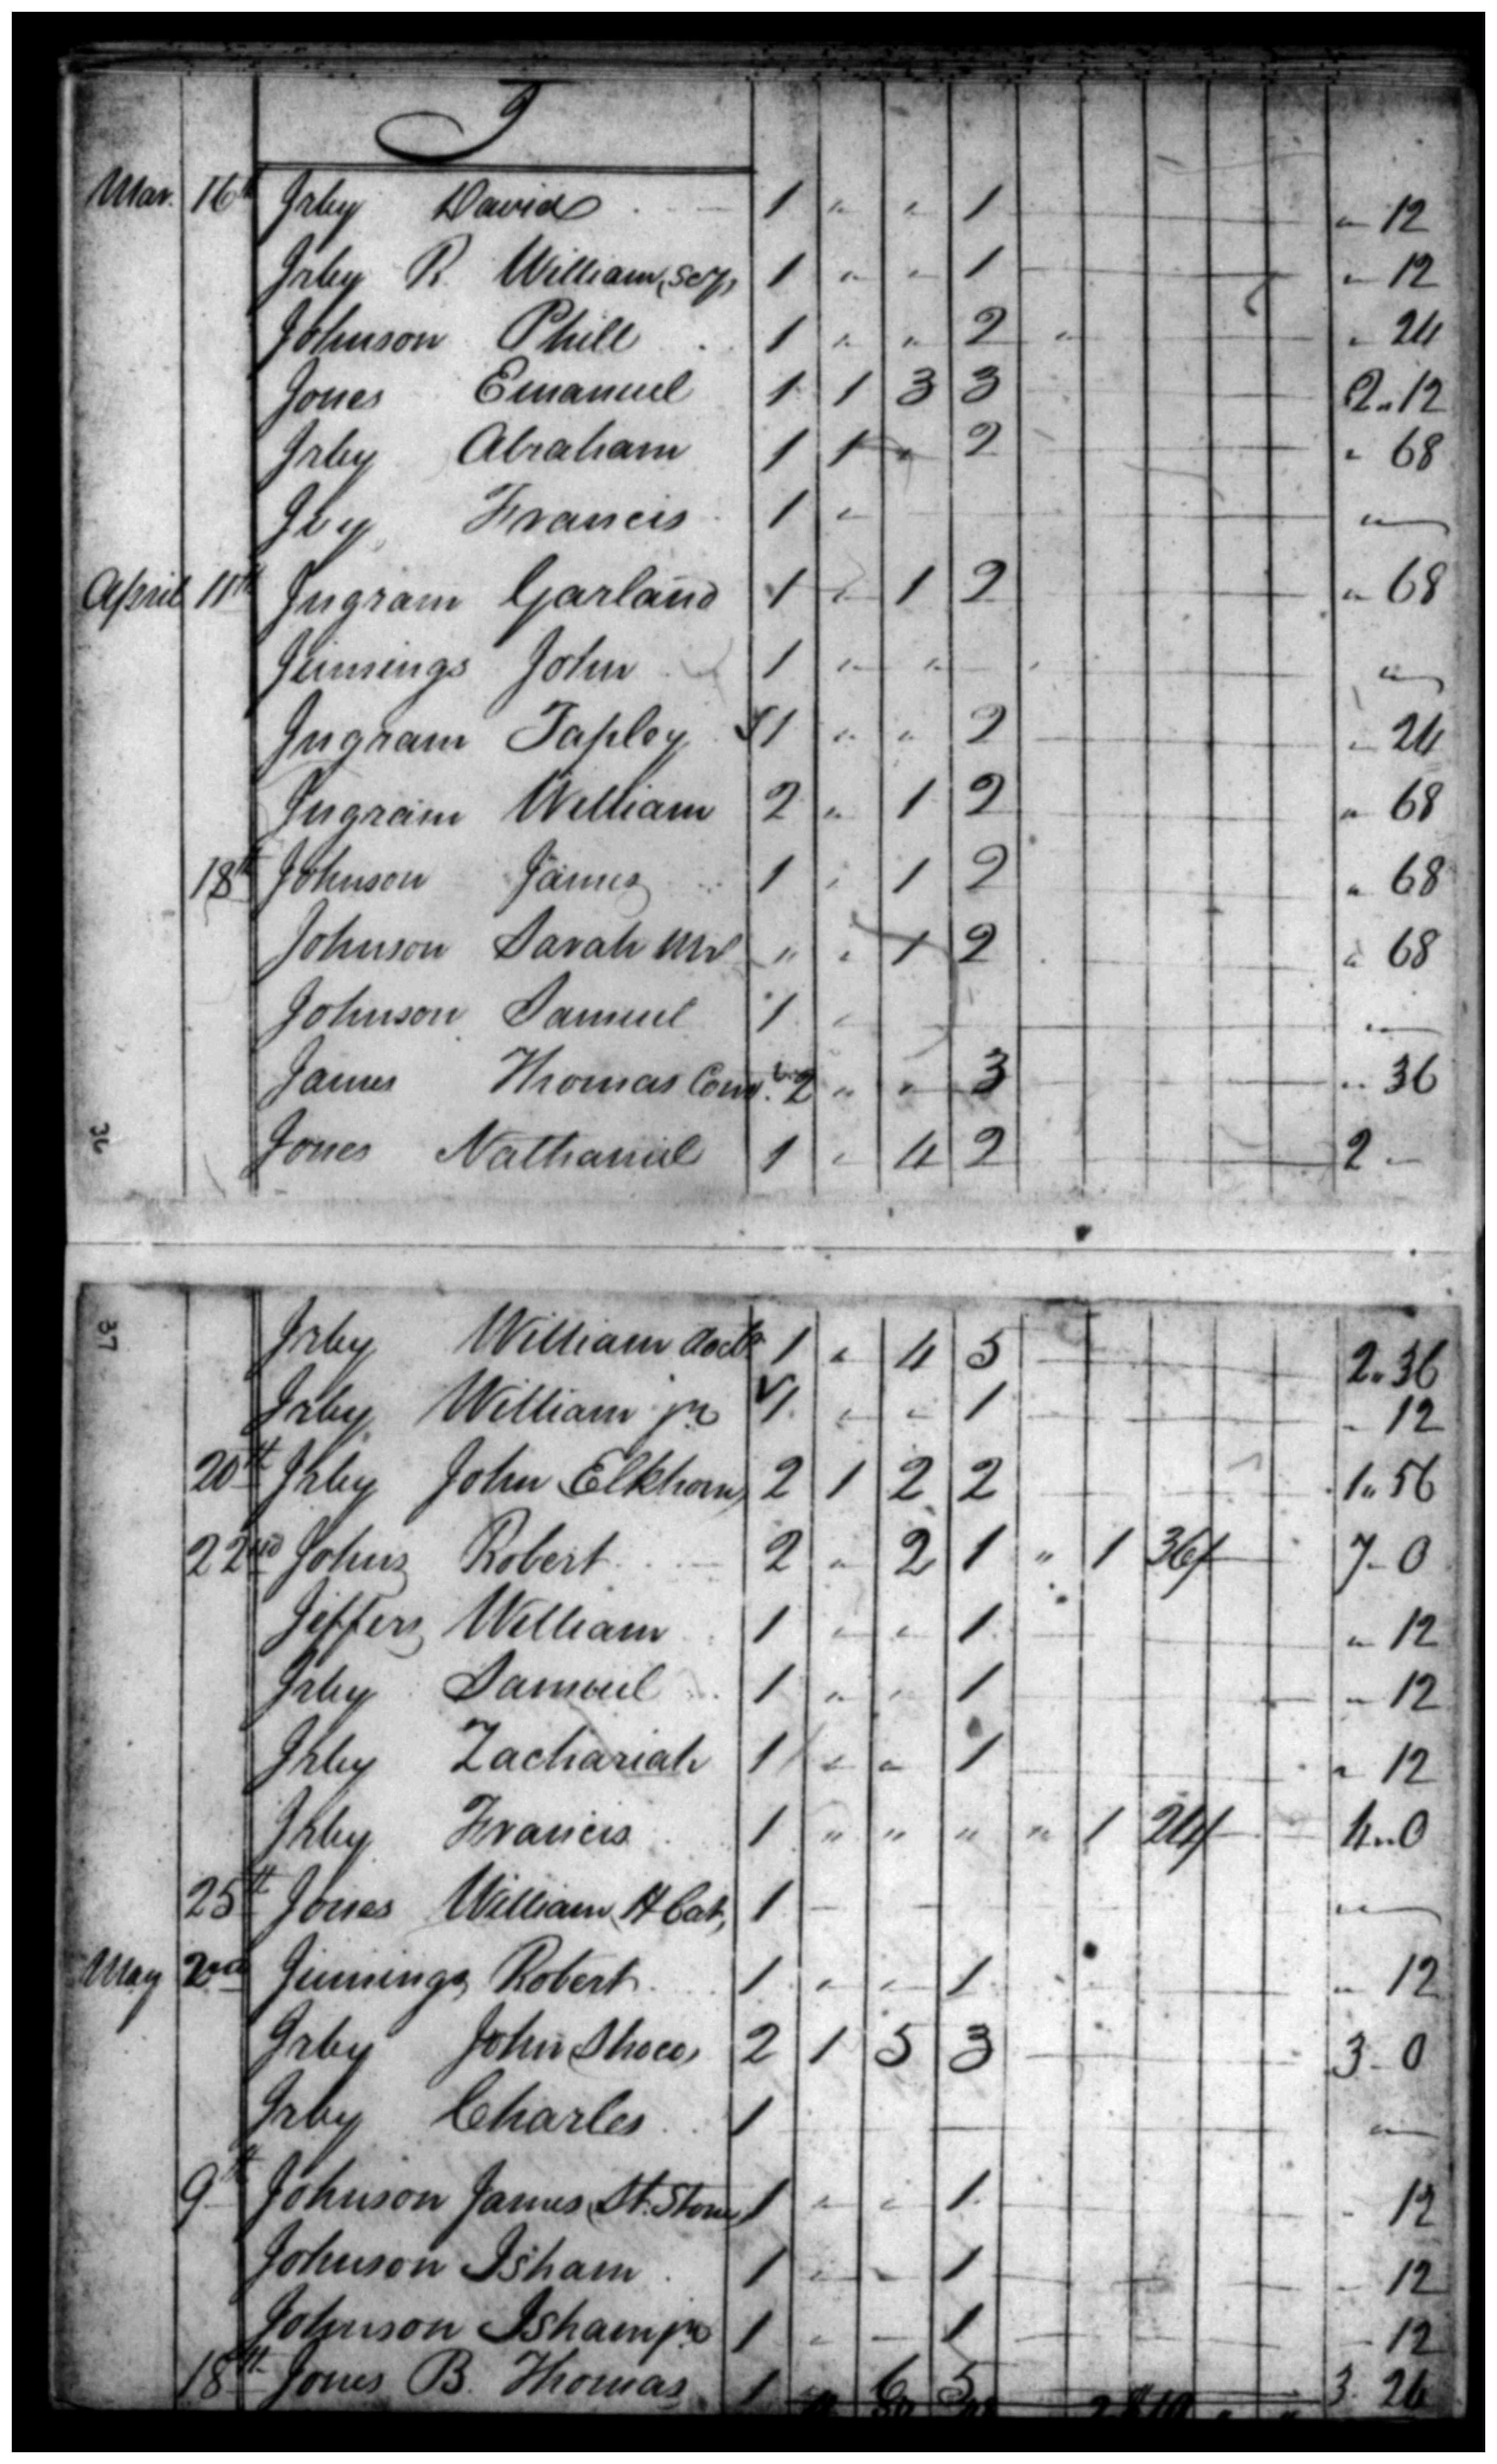 J
Mar. 16th Irby David 1 " " 1 " 12
Irby R. William, scy, 1 " " 1 " 12
Johnson Phill 1 " " 2 " " 24
Jones Emanuel 1 1 3 3 2 " 12
Irby Abraham 1 1 " 2 " 68
Ivy Francis 1 " "
April 11th Ingram Garland 1 " 1 2 " 68
Jinnings John 1 " " "
Ingram Tapley 1 " " 2 " 24
Ingram William 2 " 1 2 " 68
18th Johnson James 1 " 1 2 " 68
Johnson Sarah Mrs " " 1 2 " 68
Johnson Samuel 1 " "
James Thomas 2 " " 3 " 36
Jones Nathaniel 1 " 4 2 2 -
36
37
Irby William doctr 1 " 4 5 2 " 36
Irby William jr 1 " " 1 - 12
20th Irby John Elkhorn 2 1 2 2 1 " 56
22nd Johns Robert 2 " 2 1 " 1 36/ 7 - 0
Jeffers William 1 " " 1 " 12
Irby Samuel 1 " " 1 " 12
Irby Zachariah 1 " " 1 " 12
Irby Francis 1 " " " " 1 24/ 4 " 0
25th Jones William H Cat, 1 - - "
May 2nd Jinnings Robert 1 " " 1 " 12
Irby John Shoco, 2 1 5 3 3 - 0
Irby Charles 1 "
9th Johnson James St. Stone 1 " " 1 - 12
Johnson Isham 1 " " 1 - 12
Johnson Isham jr 1 " - 1 - 12
18th Jones B. Thomas 1 6 5 3. 26